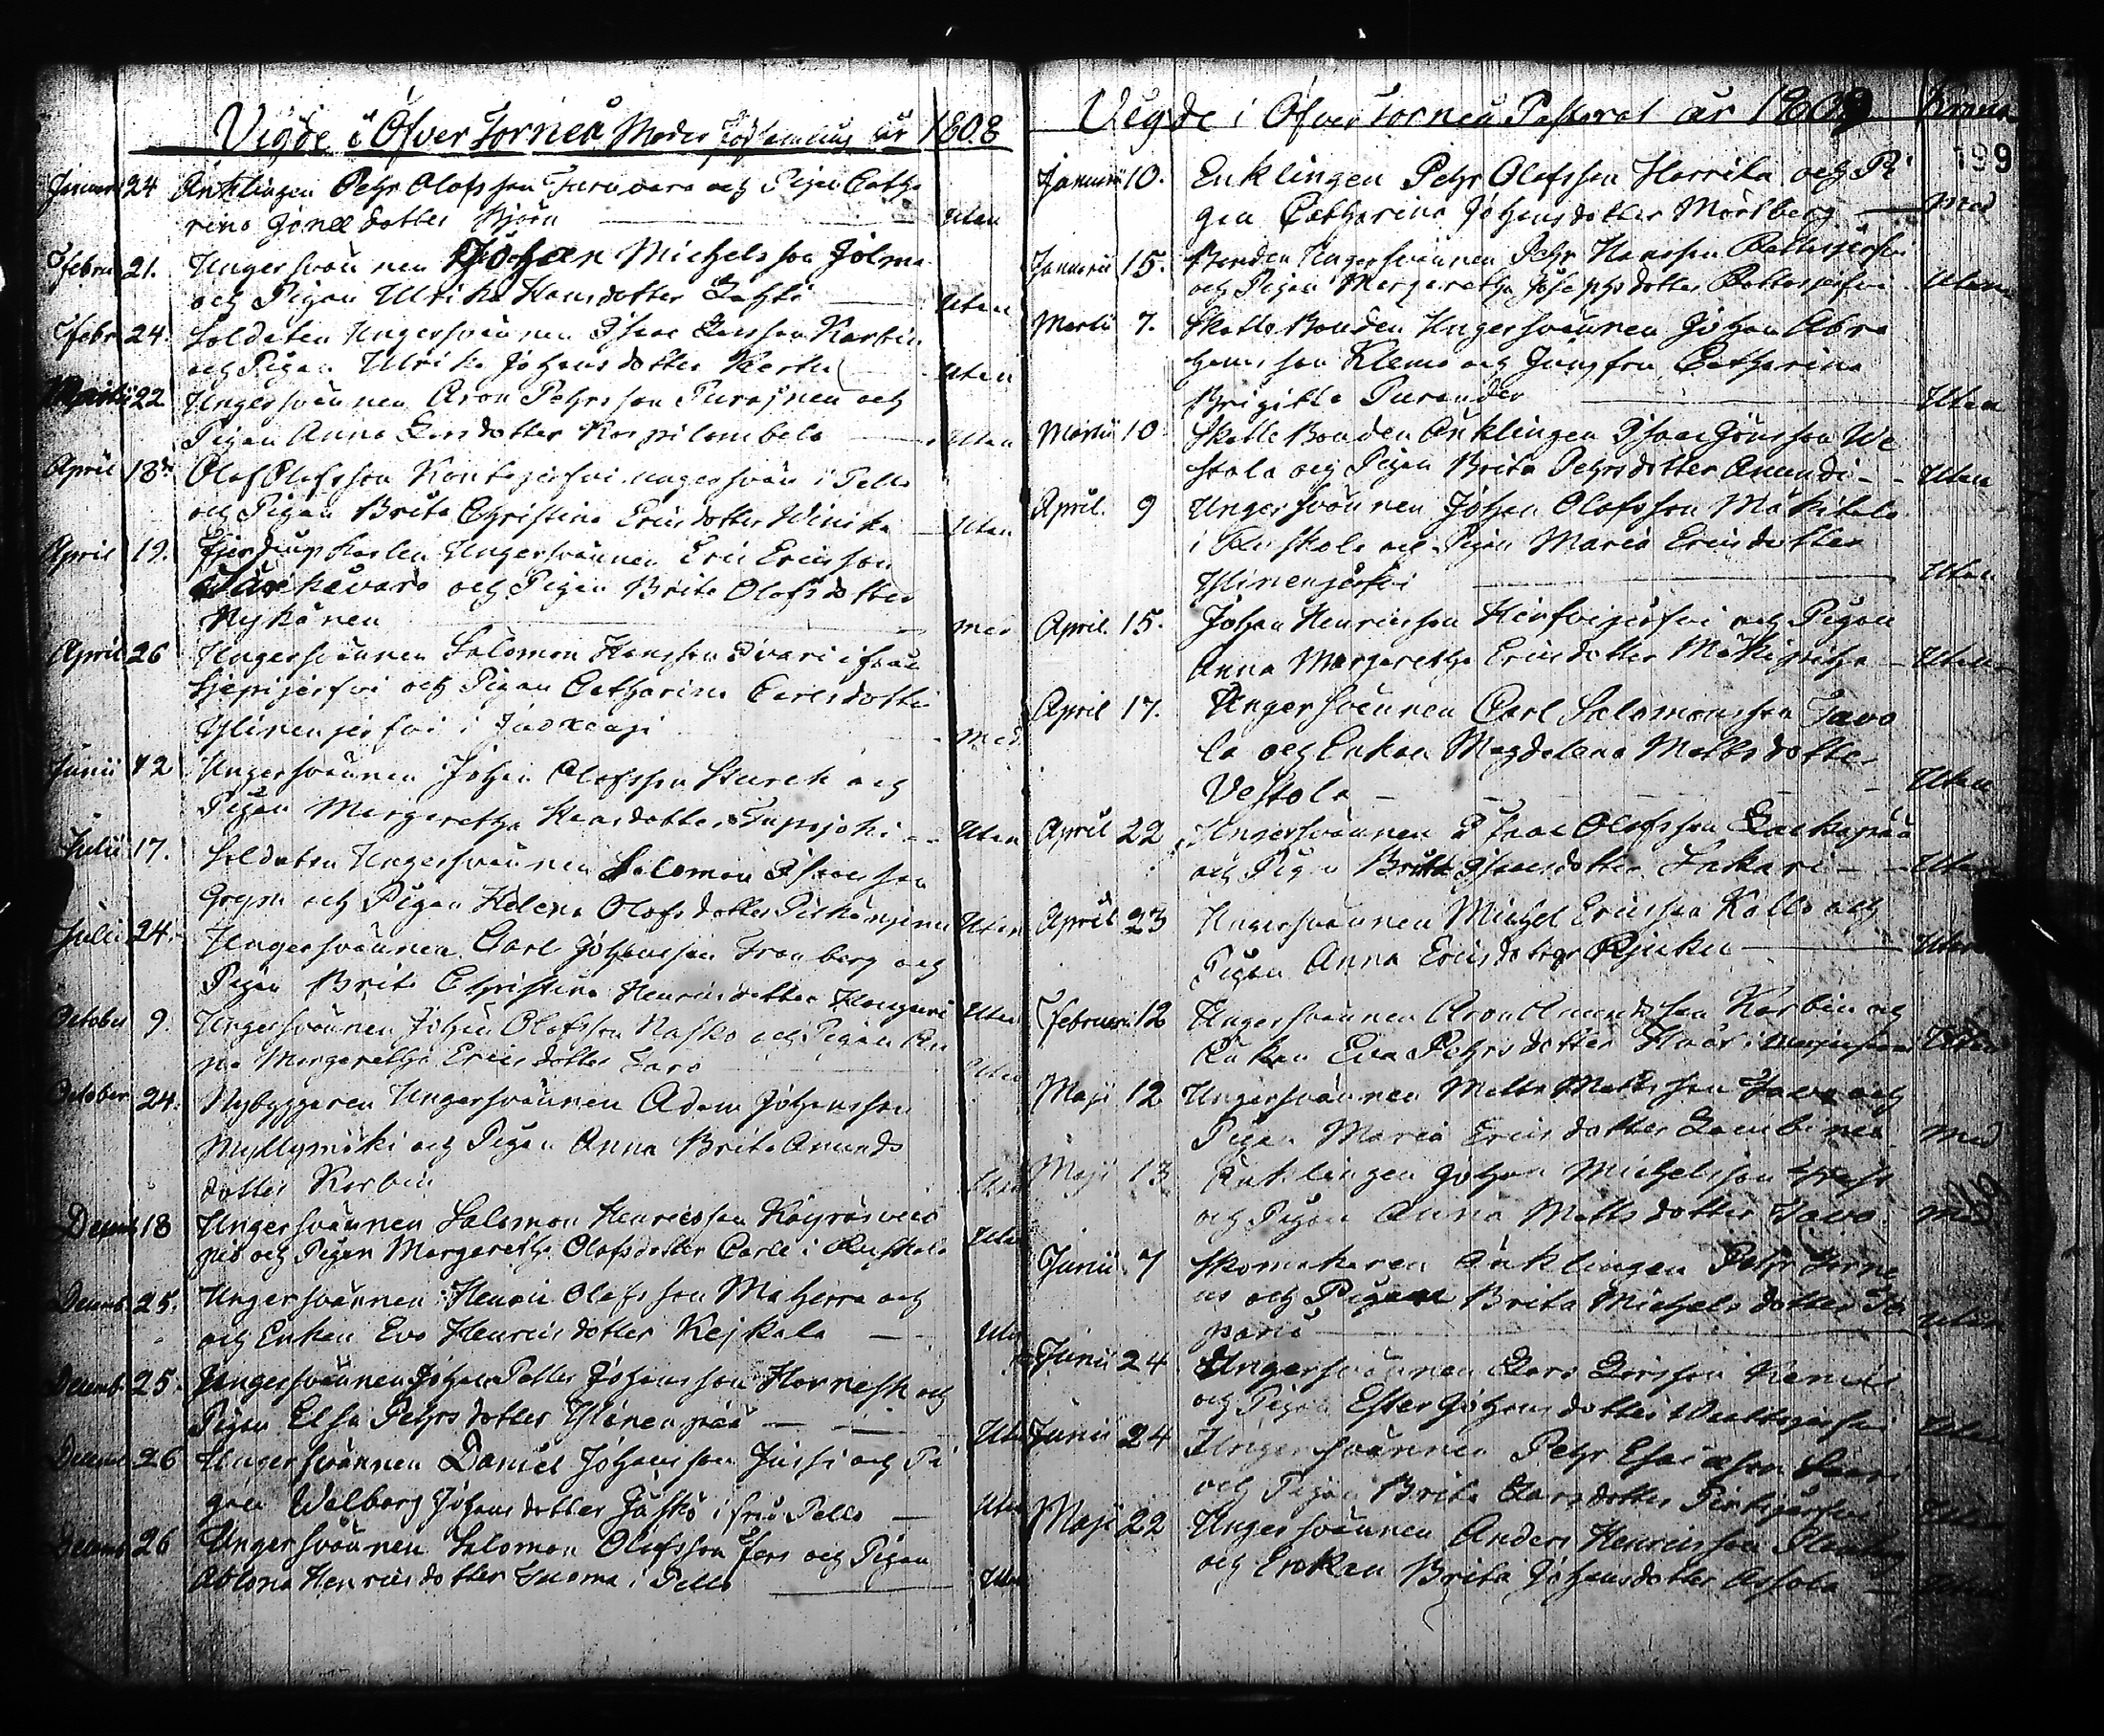 Vigde i Öfver Torneå Moder församling år 1808
Januari 24 Änklingen Pehr Olofsson Turovara och Pigan Catha
rina Jonæ dotter Björn Utan
Febru 21. Ungersvännen Johan Michelsson Jolma
och Pigan Ulrika Hansdotter Lahti Utan
Febr 24. Soldaten Ungersvännen Isaac Larsson Korbin
och Pigan Ulrika Johansdotter Utan
Martii 22 Ungersvännen Aron Pehrsson Purainen och
Pigan Anna Larsdotter Korpilombolo Utan
April 18de Olof Olofsson Kontojerfvi ungersvän i Pello
och Pigan Brita Christina Ericsdotter Winika Utan
April 19. Fjerdingskarlen Ungersvännen Eric Ericsson
och Pigan Brita Olofsdotter
Nykänen med
April 26 Ungersvännen Salomon Hansson Ivari ifrån
Sjepijerfvi och Pigan Catharina Carlsdotter
Ylinenjerfvi i Juoxengi Med
Junii 12 Ungersvännen Johan Olofsson Starck och
Pigan Margaretha Hansdotter Tupojoki Utan
Julii 17. Soldaten Ungersvännen Salomon Isaacsson
Grym och Pigan Helena Olofsdotter Utan
Julii 24. Ungersvännen Carl Johansson Fronberg och
Pigan Brita Christina Henricsdotter Utan
October 9. Ungersvännen Johan Olofsson Nasko och Pigan An
na Margaretha Ericsdotter Taro Utan
October 24. Nybyggaren Ungersvännen Adam Johansson
Myllymäki och Pigan Anna Brita Amunds
dotter Korbin Utan
Decemb 18 Ungersvännen Salomon Henricsson
och Pigan Margaretha Olofsdotter Carle i Ruskola Utan
Decemb 25. Ungersvännen Henric Olofsson Maherra och
och Enkan Eva Henricsdotter Kejkala Utan
Decemb 25. Ungersvännen Johan Petter Johansson Hornesk och
Pigan Elsa Pehrsdotter Ylinenpää Utan
Decemb 26 Ungersvännen Daniel Johansson Jussi och Pi
gan Walborg Johansdotter Jasko ifrån Pello Utan
Decemb 26 Ungersvännen Salomon Olofsson och Pigan
Henricsdotter Tuoma i Pello Utan
Vigde i Öfver Torneå Pastorat år 1809 Krona
199
Januarii 10. Enklingen Pehr Olofsson Harrila och Pi
gan Catharina Johansdotter Mörtberg Med
Januarii 15. Bonden Ungersvännen Pehr Hansson Rattosjerfvi
och Pigan Margaretha Josephsdotter Rattosjerfvi Utan
Martii 7. Skatte Bonden Ungersvännen Johan Abra
hamsson Klemo och Jungfru Catharina
Brigitta Purander Utan
Martii 10 Skatte Bonden Änklingen Isaac Jönsson We
stola och Pigan Brita Pehrsdotter Amundi Utan
April. 9 Ungersvännen Johan Olofsson Mäkitalo
i Ruskola och Pigan Maria Ericsdotter
Ylinenjärfvi Utan
April. 15. Johan Henricsson Hirfvijerfvi och Pigan
Anna Margaretha Ericsdotter Mäkipitja Utan
April 17. Ungersvännen Carl Salomonsson Tavo
la och Enkan Magdalena Mattsdotter
Vestola Utan
April 22 Ungersvännen Isaac Olofsson Laukapää
och Pigan Brita Isaacsdotter Sakari Utan
April 23 Ungersvännen Michel Ericsson Kallo och
Pigan Anna Ericsdotter Utan
Februarii 12 Ungersvännen Aron Amundsson Korbin och
Enkan Eva Pehrsdotter Utan
Maji 12 Ungersvännen Matts Mattsson Tavo och
Pigan Maria Ericsdotter med
Maji 13 Änklingen Johan Michelsson
och Pigan Anna Mattsdotter Tavo med
Junii 7 Skomakaren Änklingen Pehr Forne
us och Pigan Brita Michelsdotter Utan
Junii 24 Ungersvännen Lars Larsson
och Pigan Ester Johansdotter Utan
Junii 24 Ungersvännen Pehr Esaiasson
och Pigan Brita Larsdotter Utan
Maji 22 Ungersvännen Anders Henricsson
och Enkan Brita Johansdotter Assola Utan